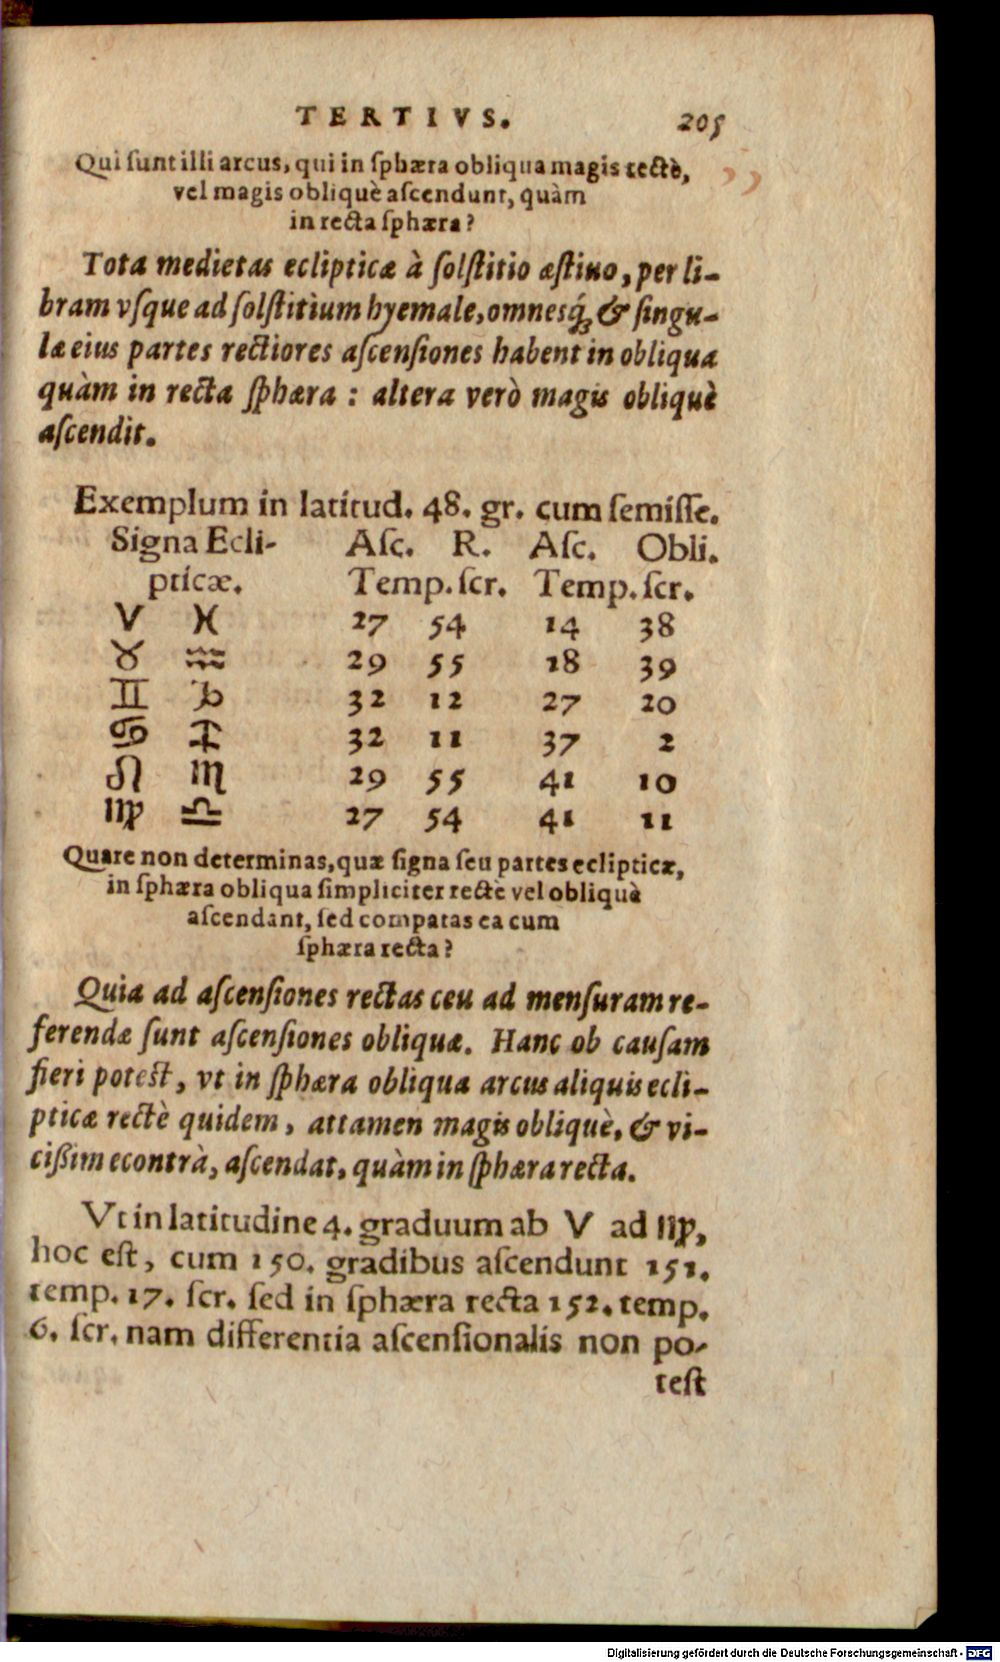 TERTIVS. 205
Qui sunt illi arcus, qui in sphæra obliqua magis rectè,
vel magis obliquè ascendunt, quàm
in recta sphæra?
Tota medietas eclipticæ à solstitio æstiuo, per li-
bram vsque ad solstitium hyemale, omnesq́ꝫ & singu-
læ eius partes rectiores ascensiones habent in obliqua
quàm in recta sphæra : altera verò magis obliquè
ascendit.
Exemplum in latitud. 48. gr. cum semisse.
Signa Ecli- Asc. R. Asc. Obli.
pticæ. Temp. scr. Temp. scr.
♈ ♓ 27 54 14 38
♉ ♒ 29 55 18 39
♊ ♑ 32 12 27 20
♋ ♐ 32 11 37 2
♌ ♏ 29 55 41 10
♍ ♎ 27 54 41 11
Quare non determinas, quæ signa seu partes eclipticæ,
in sphæra obliqua simpliciter rectè vel obliquè
ascendant, sed comparas ea cum
sphæra recta?
Quia ad ascensiones rectas ceu ad mensuram re-
ferendæ sunt ascensiones obliquæ. Hanc ob causam
fieri potest, vt in sphæra obliqua arcus aliquis ecli-
pticæ rectè quidem, attamen magis obliquè, & vi-
cißim econtrà, ascendat, quàm in sphæra recta.
Vt in latitudine 4. graduum ab ♈ ad ♍,
hoc est, cum 150. gradibus ascendunt 151.
temp. 17. scr. sed in sphæra recta 152. temp.
6. scr. nam differentia ascensionalis non po-
test
Digitalisierung gefördert durch die Deutsche Forschungsgemeinschaft - DFG